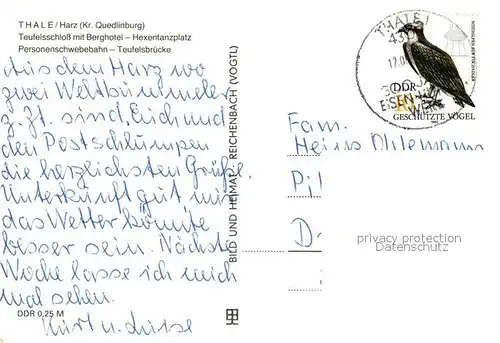 THALE/Harz (Kr. Quedlinburg)
Teufelsschloß mit Berghotel – Hexentanzplatz
Personenschwebebahn – Teufelsbrücke
Aus dem Harz wo
zwei Weltbummeler
z. Zt. sind, Euch und
den Postschlümpen
die herzlichsten Grüße.
Unterkunft gut nur
das Wetter könnte
besser sein. Nächste
Woche lasse ich mich
mal sehen.
DDR 0,25 M
Kurt u. Luise
BILD UND HEIMAT REICHENBACH (VOGTL)
THALE
43
DDR
GESCHÜTZTE VÖGEL
Fam.
Heinz
privacy protection
Datenschutz